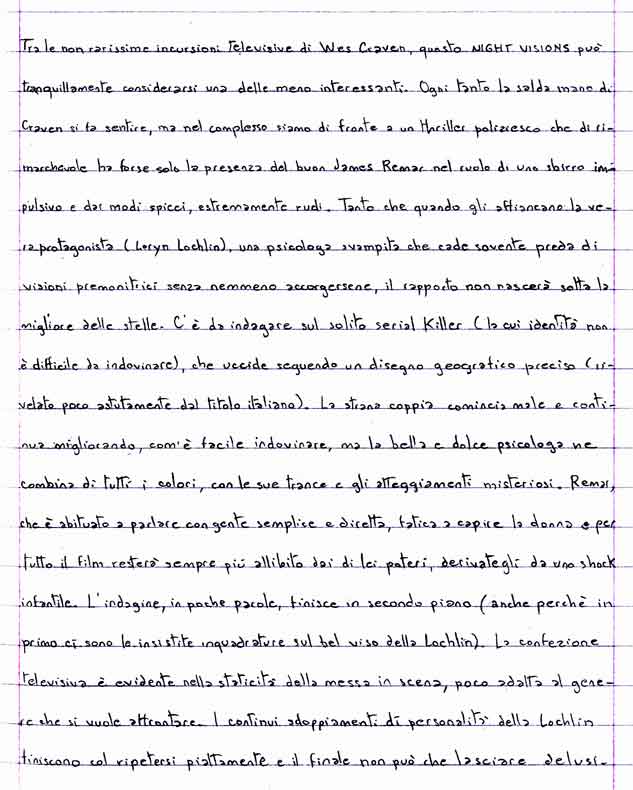 Tra le non rarissime incursioni televisive di Wes Craven, questo NIGHT VISIONS può
tranquillamente considerarsi una delle meno interessanti. Ogni tanto la salda mano di
Craven si fa sentire, ma nel complesso siamo di fronte a un thriller polizesco che di ri-
marchevole ha forse solo la presenza del buon James Remar nel ruolo di uno sbirro im-
pulsivo e dai modi spicci, estremamente rudi. Tanto che quando gli affiancano la ve-
ra protagonista (Loryn Lochlin), una psicologa svampita che cade sovente preda di
visioni premonitrici senza nemmeno accorgersene, il rapporto non nascerà sotto la
migliore delle stelle. C'è da indagare sul solito serial killer (la cui identità non
è difficile da indovinare), che uccide seguendo un disegno geografico preciso (ri-
velato poco astutamente dal titolo italiano). La strana coppia comincia male e conti-
nua migliorando, com'è facile indovinare, ma la bella e dolce psicologa ne
combina di tutti i colori, con le sue trance e gli atteggiamenti misteriosi. Remar,
che è abituato a parlare con gente semplice e diretta, fatica a capire la donna e per
tutto il film resterà sempre più allibito dai di lei poteri, derivategli da uno shock
infantile. L'indagine, in poche parole, finisce in secondo piano (anche perchè in
primo ci sono le insistite inquadrature sul bel viso della Lochlin). La confezione
televisiva è evidente nella staticità della messa in scena, poco adatta al gene-
re che si vuole affrontare. I continui sdoppiamenti di personalità della Lochlin
finiscono col ripetersi piattamente e il finale non può che lasciare delusi.